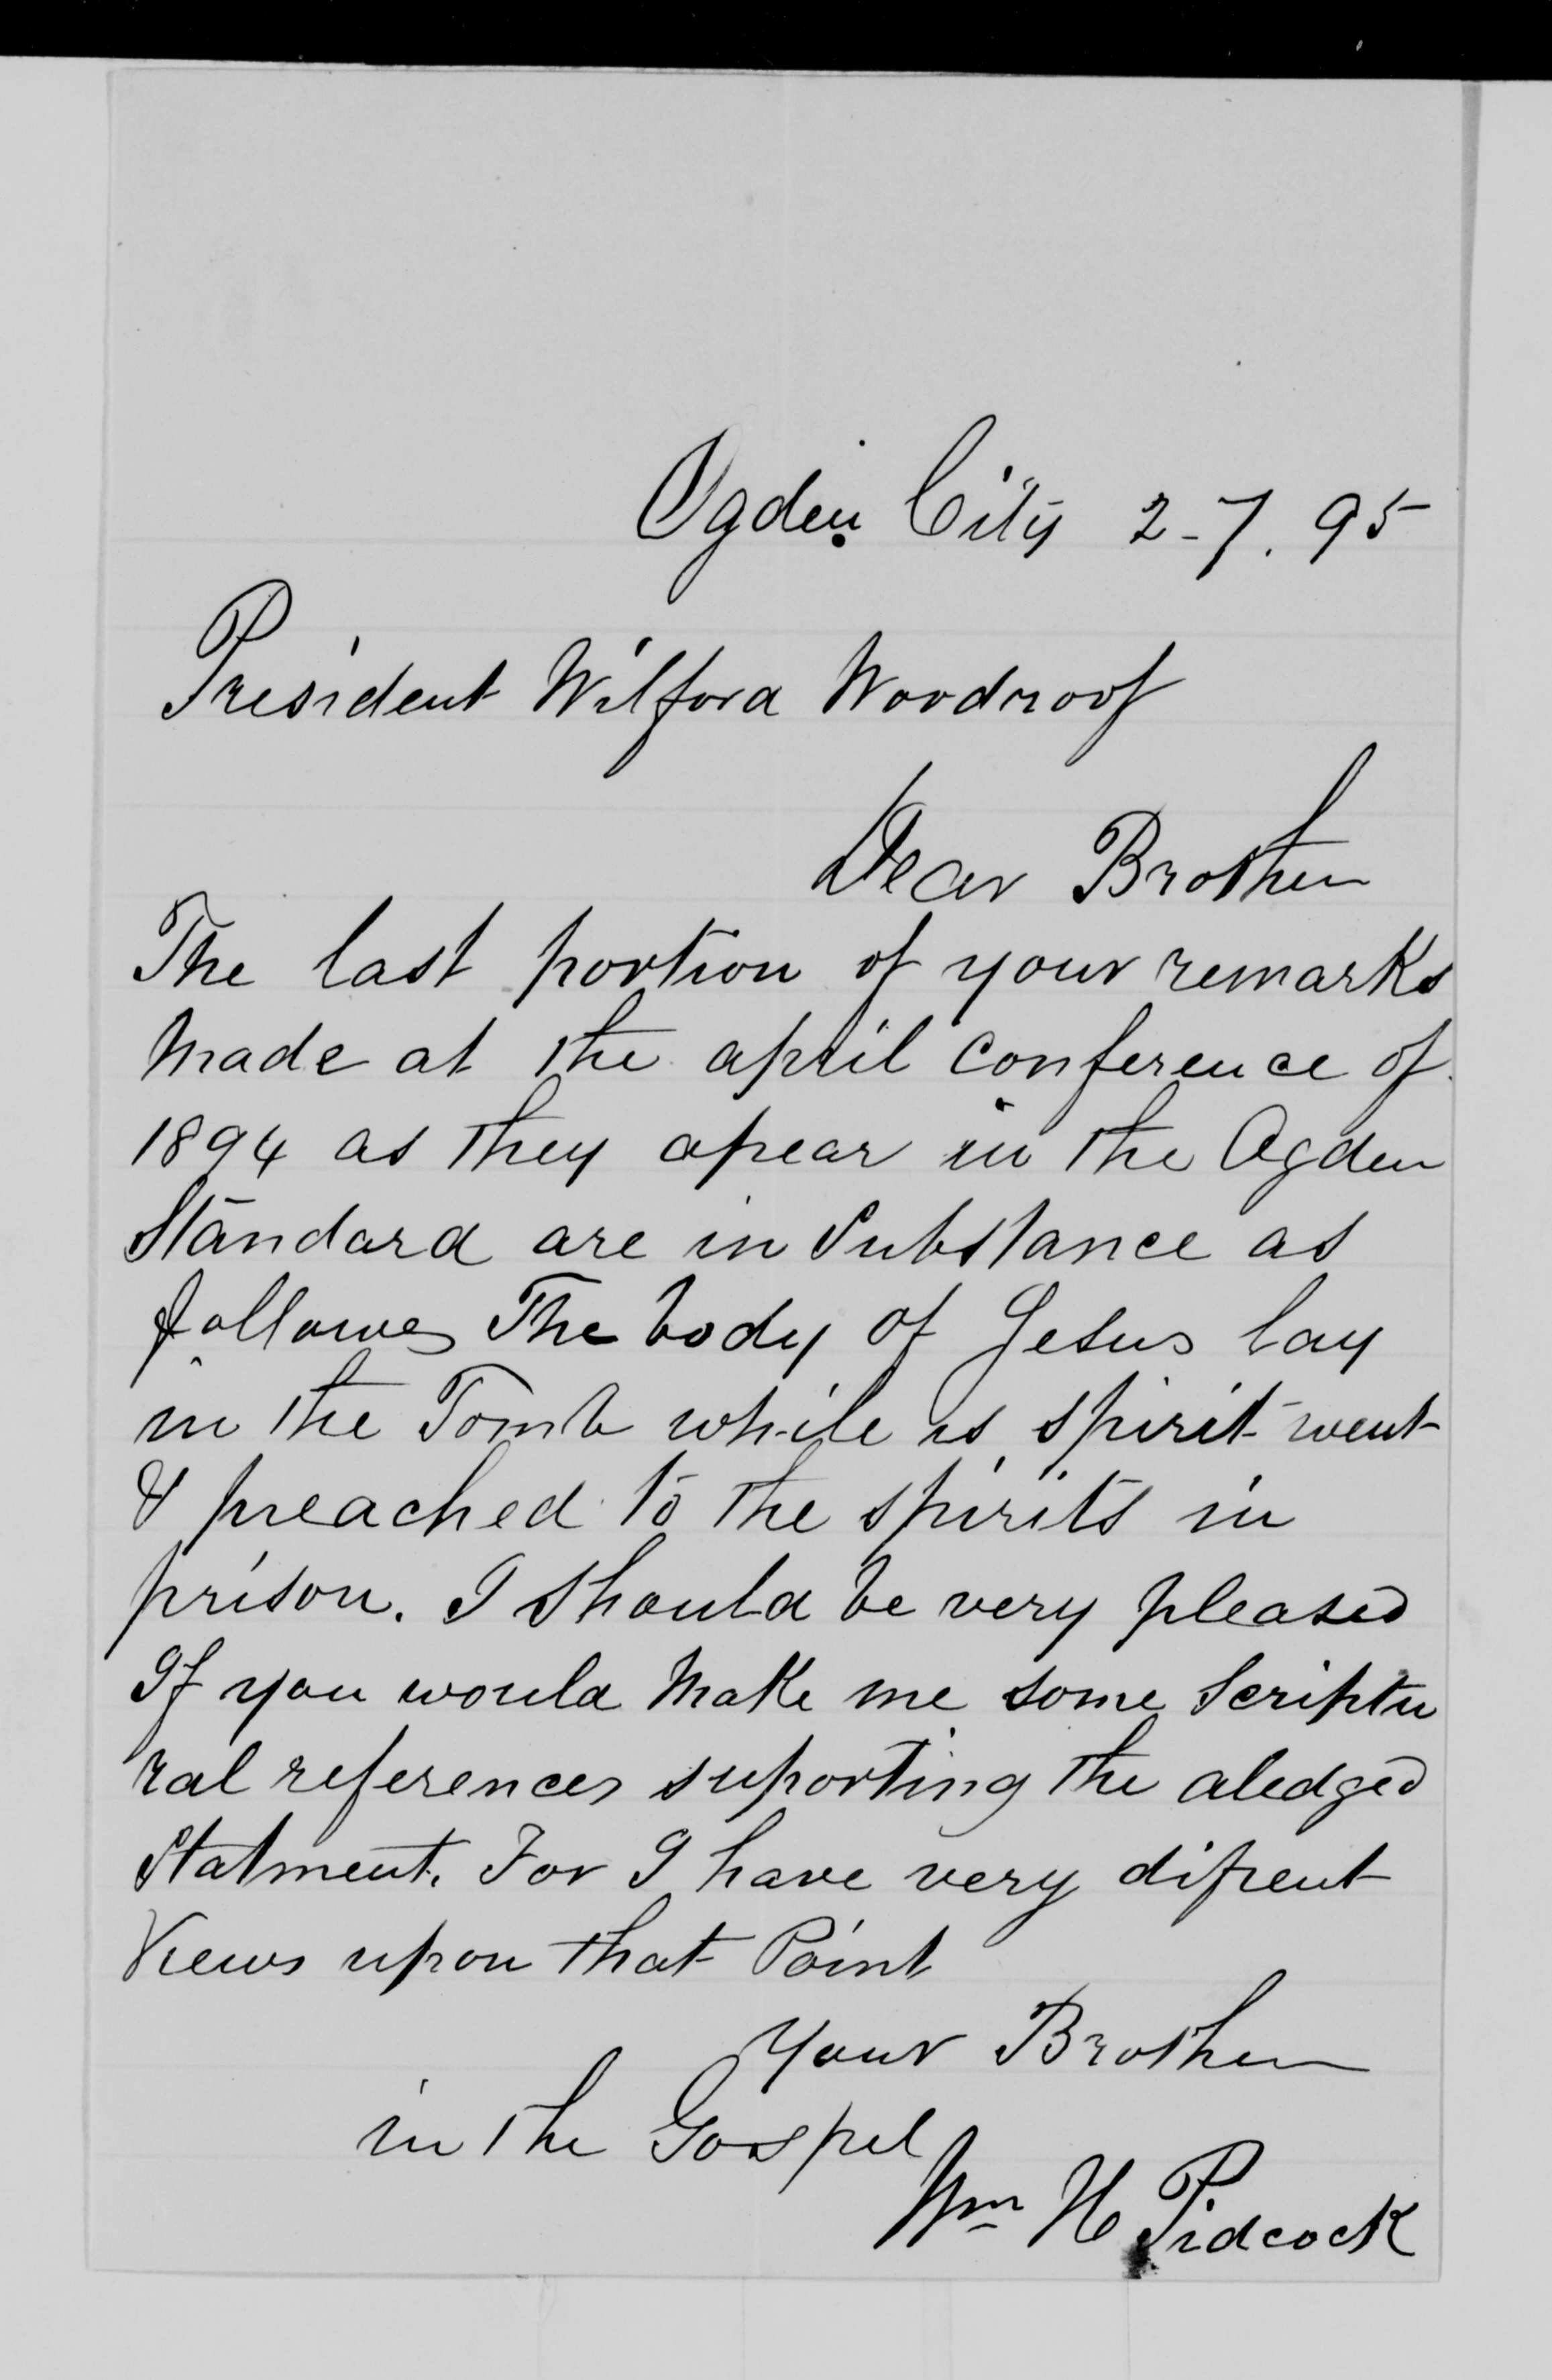 Ogden City 2-7.95
President Wilford Woodroof
Dear Brother
The last portion of your remarks
Made at the april Conference of
1894 as they apear in the Ogden
Standard are in Substance as
followes The body of Jesus lay
in the Tomb while is spirit went
& preached to the spirits in
prison. I should be very pleased
If you would Make me some Scriptu
ral references suporting the aledged
Statment. For I have very difrent
Views upon that Point
Your Brother
in the Gospel
Wm H Pidcock